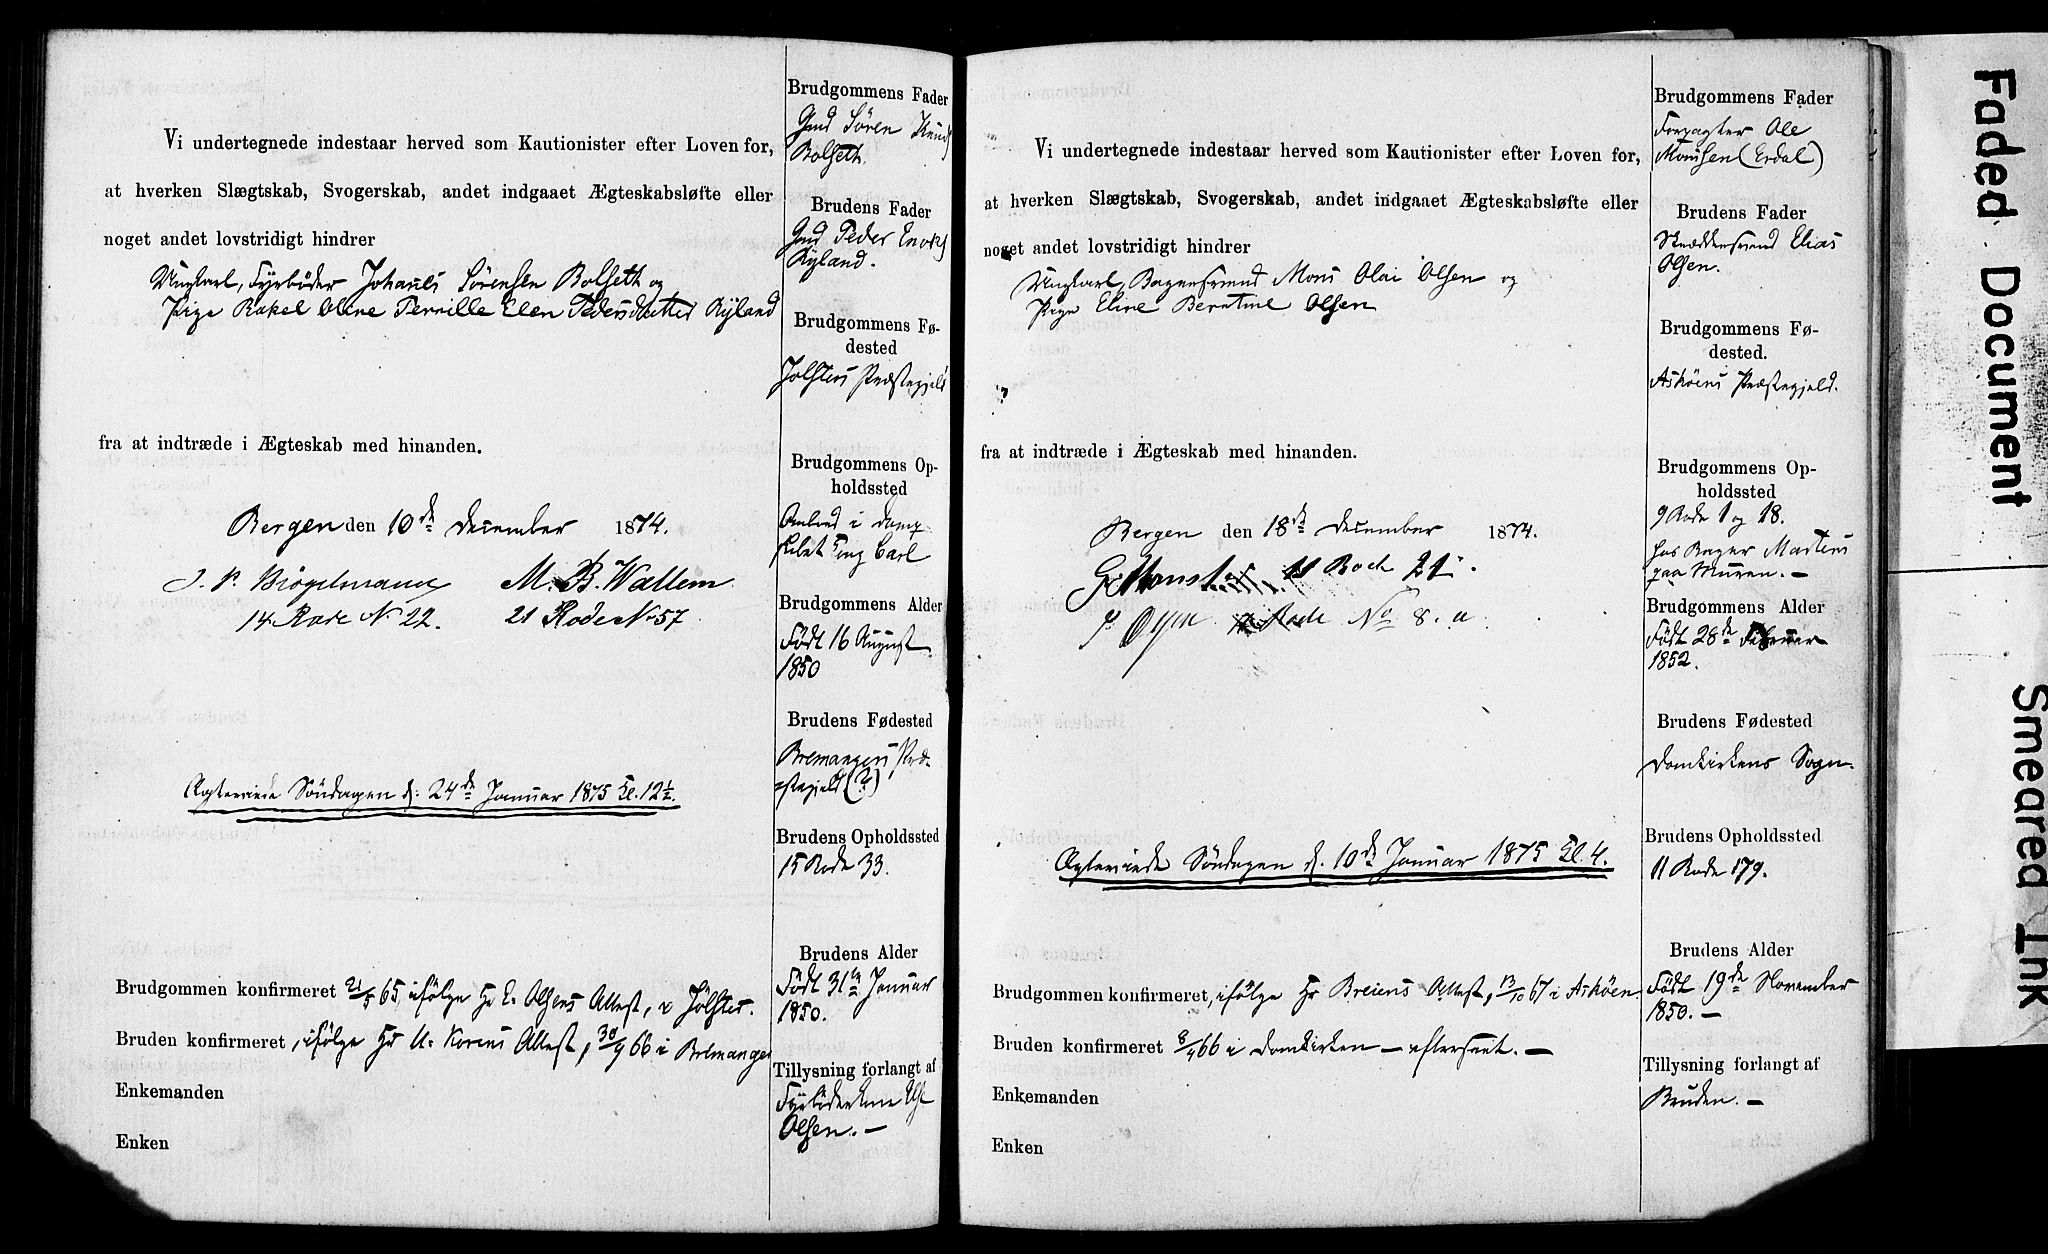 Brudgommens Fader
Gmd Søren Knuds
Bolseth.
Vi undertegnede indestaar herved som Kautionister efter Loven for,
at hverken Slægtskab, Svogerskab, andet indgaaet Ægteskabsløfte eller
noget andet lovstridigt hindrer
Brudens Fader
Gmd Peder Enoks
Ryland.
Ungkarl, Fyrbøder Johanes Sørensen Bolseth og
Pige Rakel Oline Pernille Elen Pedersdatter Ryland
Brudgommens Fø-
dested
Jølsters Præstegjeld
fra at indtræde i Ægteskab med hinanden.
Brudgommens Op-
holdssted
Ombord i Damp-
skibet King Carl
Bergen den 10de December 1874.
J. P. Bögelmann M. B. Wallem
14 Rode No 22. 21 Rode No 57
Brudgommens Alder
Født 16 August
1850
Brudens Fødested
Bremangers Præ-
stegjeld (?)
Ægteviede Söndagen d: 24de Januar 1875 Kl. 12½.
Brudens Opholdssted
15 Rode 33.
Brudens Alder
Født 31te Januar
1850.
Brudgommen konfirmeret 21/5 65, ifølge Hr E. Olsens Attest, i Jølster.
Bruden konfirmeret, ifølge Hr U. Korens Attest, 30/9 66 i Bremanger
Tillysning forlangt af
Fyrbøderkone
Olsen. —
Enkemanden
Enken
Brudgommens Fader
Forpagter Ole
Monsen (Erdal)
Vi undertegnede indestaar herved som Kautionister efter Loven for,
at hverken Slægtskab, Svogerskab, andet indgaaet Ægteskabsløfte eller
noget andet lovstridigt hindrer
Brudens Fader
Skræddersvend Elias
Olsen.
Ungkarl, Bagersvend Mons Olai Olsen og
Pige Eline Berntine Olsen
Brudgommens Fø-
dested.
Askøens Præstegjeld.
fra at indtræde i Ægteskab med hinanden.
Brudgommens Op-
holdssted
9 Rode 1 og 18.
hos Bager Martens
paa Muren. —
Bergen den 18de December 1874.
11 Rode 21.
Rode No 8. a
Brudgommens Alder
Født 28de Februar
1852.
Brudens Fødested
Domkirkens Sogn.
Ægteviede Söndagen d. 10de Januar 1875 Kl. 4.
Brudens Opholdssted
11 Rode 179.
Brudens Alder
Født 19de November
1850. —
Brudgommen konfirmeret, ifølge Hr Breiens Attest, 13/10 67 i Askøen.
Bruden konfirmeret 8/4 66 i Domkirken — efterseet. —
Tillysning forlangt af
Bruden. —
Enkemanden
Enken
Faded Document
Smeared Ink